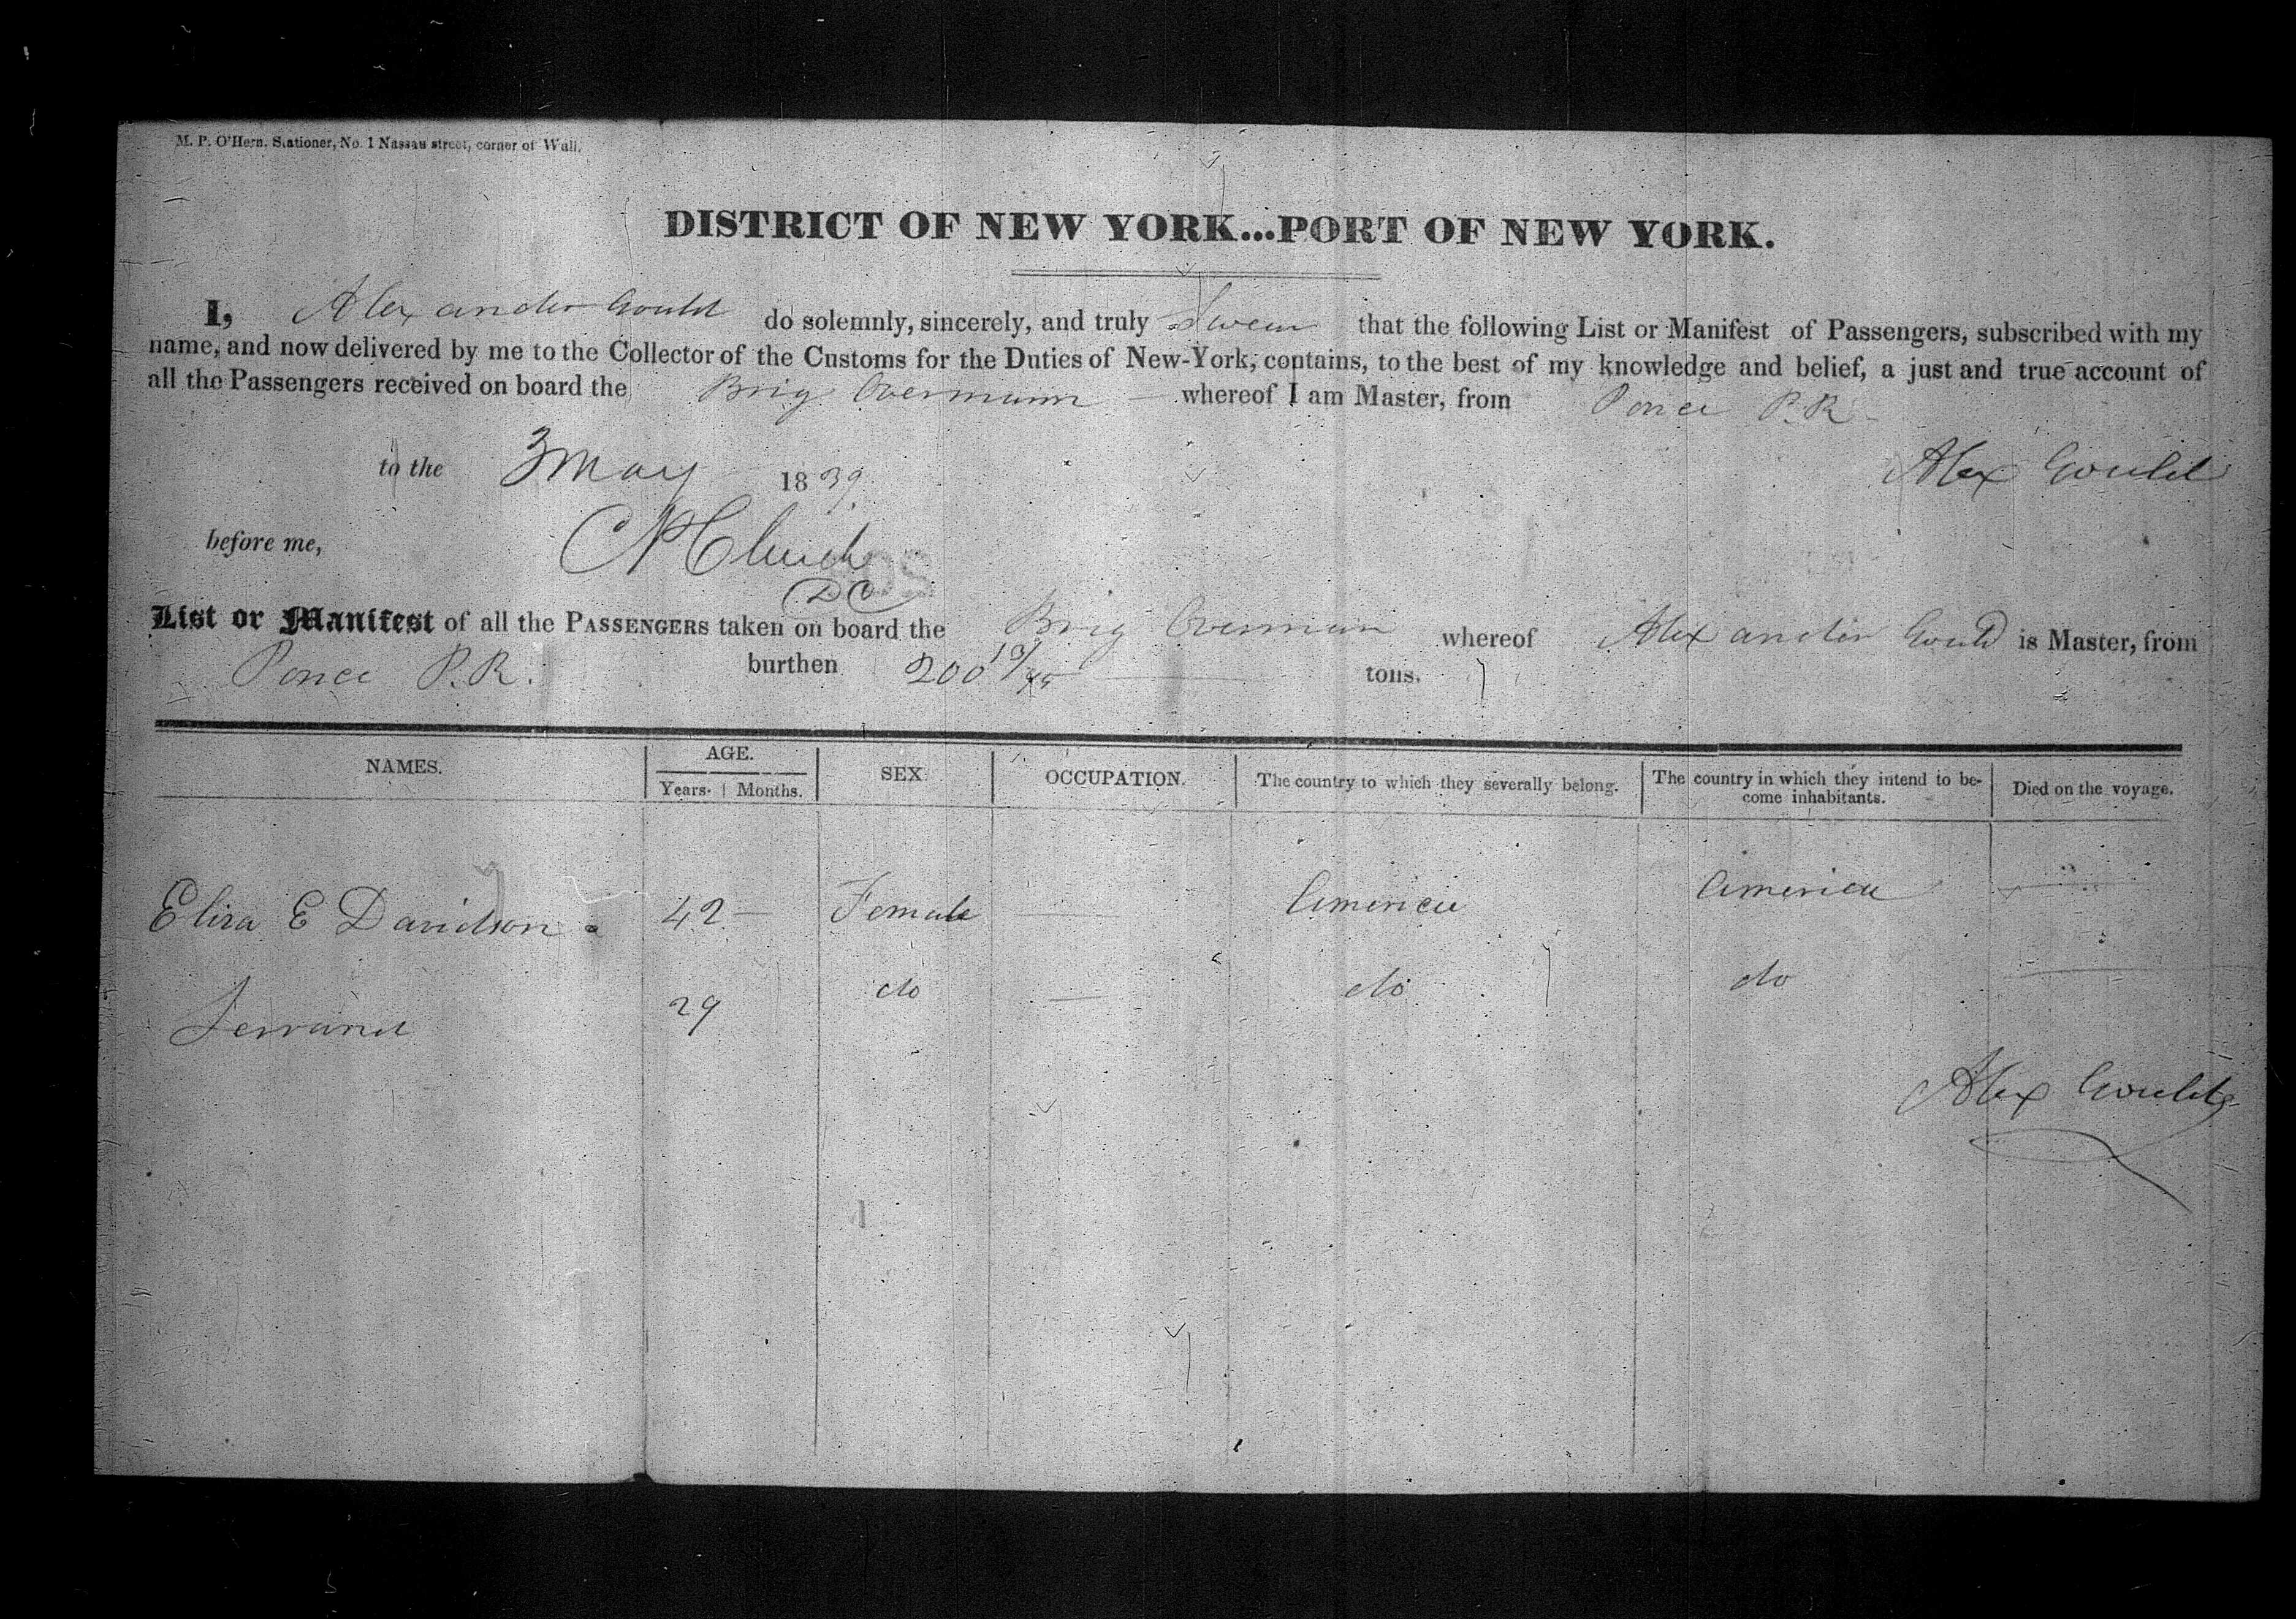 M. P. O'Hern, Stationer, No. 1 Nassau street, corner of Wall.
DISTRICT OF NEW YORK...PORT OF NEW YORK.
I, Alexander Gould do solemnly, sincerely, and truly Swear that the following List or Manifest of Passengers, subscribed with my
name, and now delivered by me to the Collector of the Customs for the Duties of New-York, contains, to the best of my knowledge and belief, a just and true account of
all the Passengers received on board the Brig Overmann whereof I am Master, from Ponce P.R
to the 3 May 1839 Alex Gould
before me,
DC
List or Manifest of all the PASSENGERS taken on board the Brig Overman whereof Alexander Gould is Master, from
Ponce P.R. burthen 200 19/95 tons.
NAMES. AGE. Years. Months. SEX. OCCUPATION. The country to which they severally belong. The country in which they intend to become inhabitants. Died on the voyage.
Eliza E Davidson 42 — Female — America America —
Servant 29 do — do do —
Alex Gould